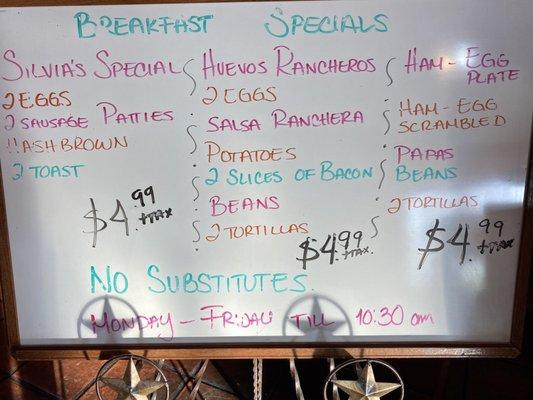 BREAKFAST SPECIALS
SILVIA'S SPECIAL
2 EGGS
2 SAUSAGE PATTIES
HASH BROWN
2 TOAST
$4.99
+TAX
HUEVOS RANCHEROS
2 EGGS
SALSA RANCHERA
POTATOES
2 SLICES OF BACON
BEANS
2 TORTILLAS
$4.99
+TAX
HAM-EGG
PLATE
HAM-EGG
SCRAMBLED
PAPAS
BEANS
2 TORTILLAS
$4.99
+TAX
NO SUBSTITUTES.
MONDAY - FRIDAY TILL 10:30 am